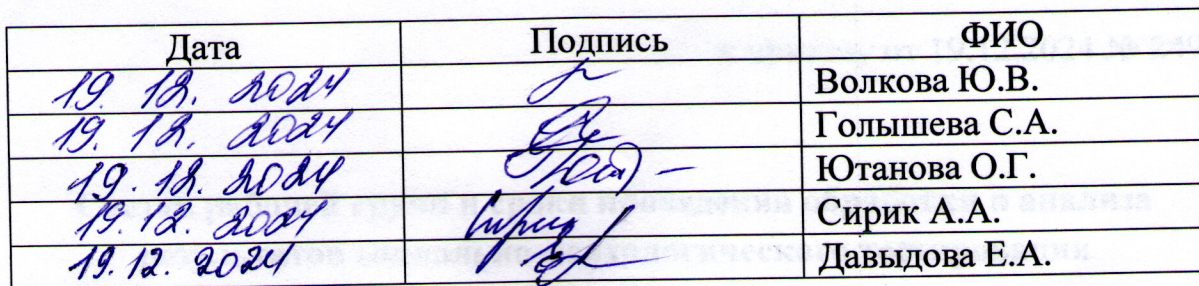 Дата Подпись ФИО
19. 12. 2024 Волкова Ю.В.
19. 12. 2024 Голышева С.А.
19. 12. 2024 Ютанова О.Г.
19. 12. 2024 Сирик А.А.
19. 12. 2024 Давыдова Е.А.